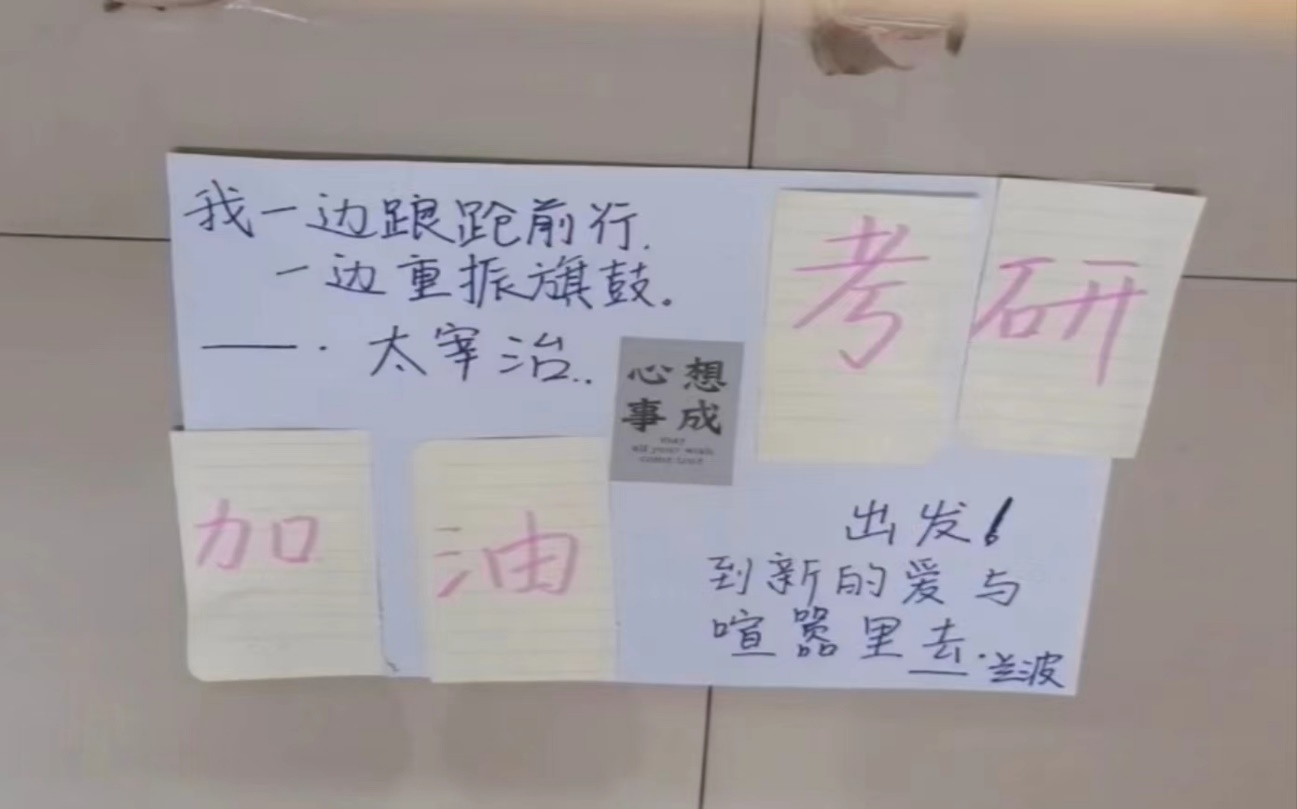 我一边踉跄前行.
一边重振旗鼓。
——·太宰治..
考研
心想
事成
may
all your wish
come true
加油
出发!
到新的爱与
喧嚣里去.
——兰波